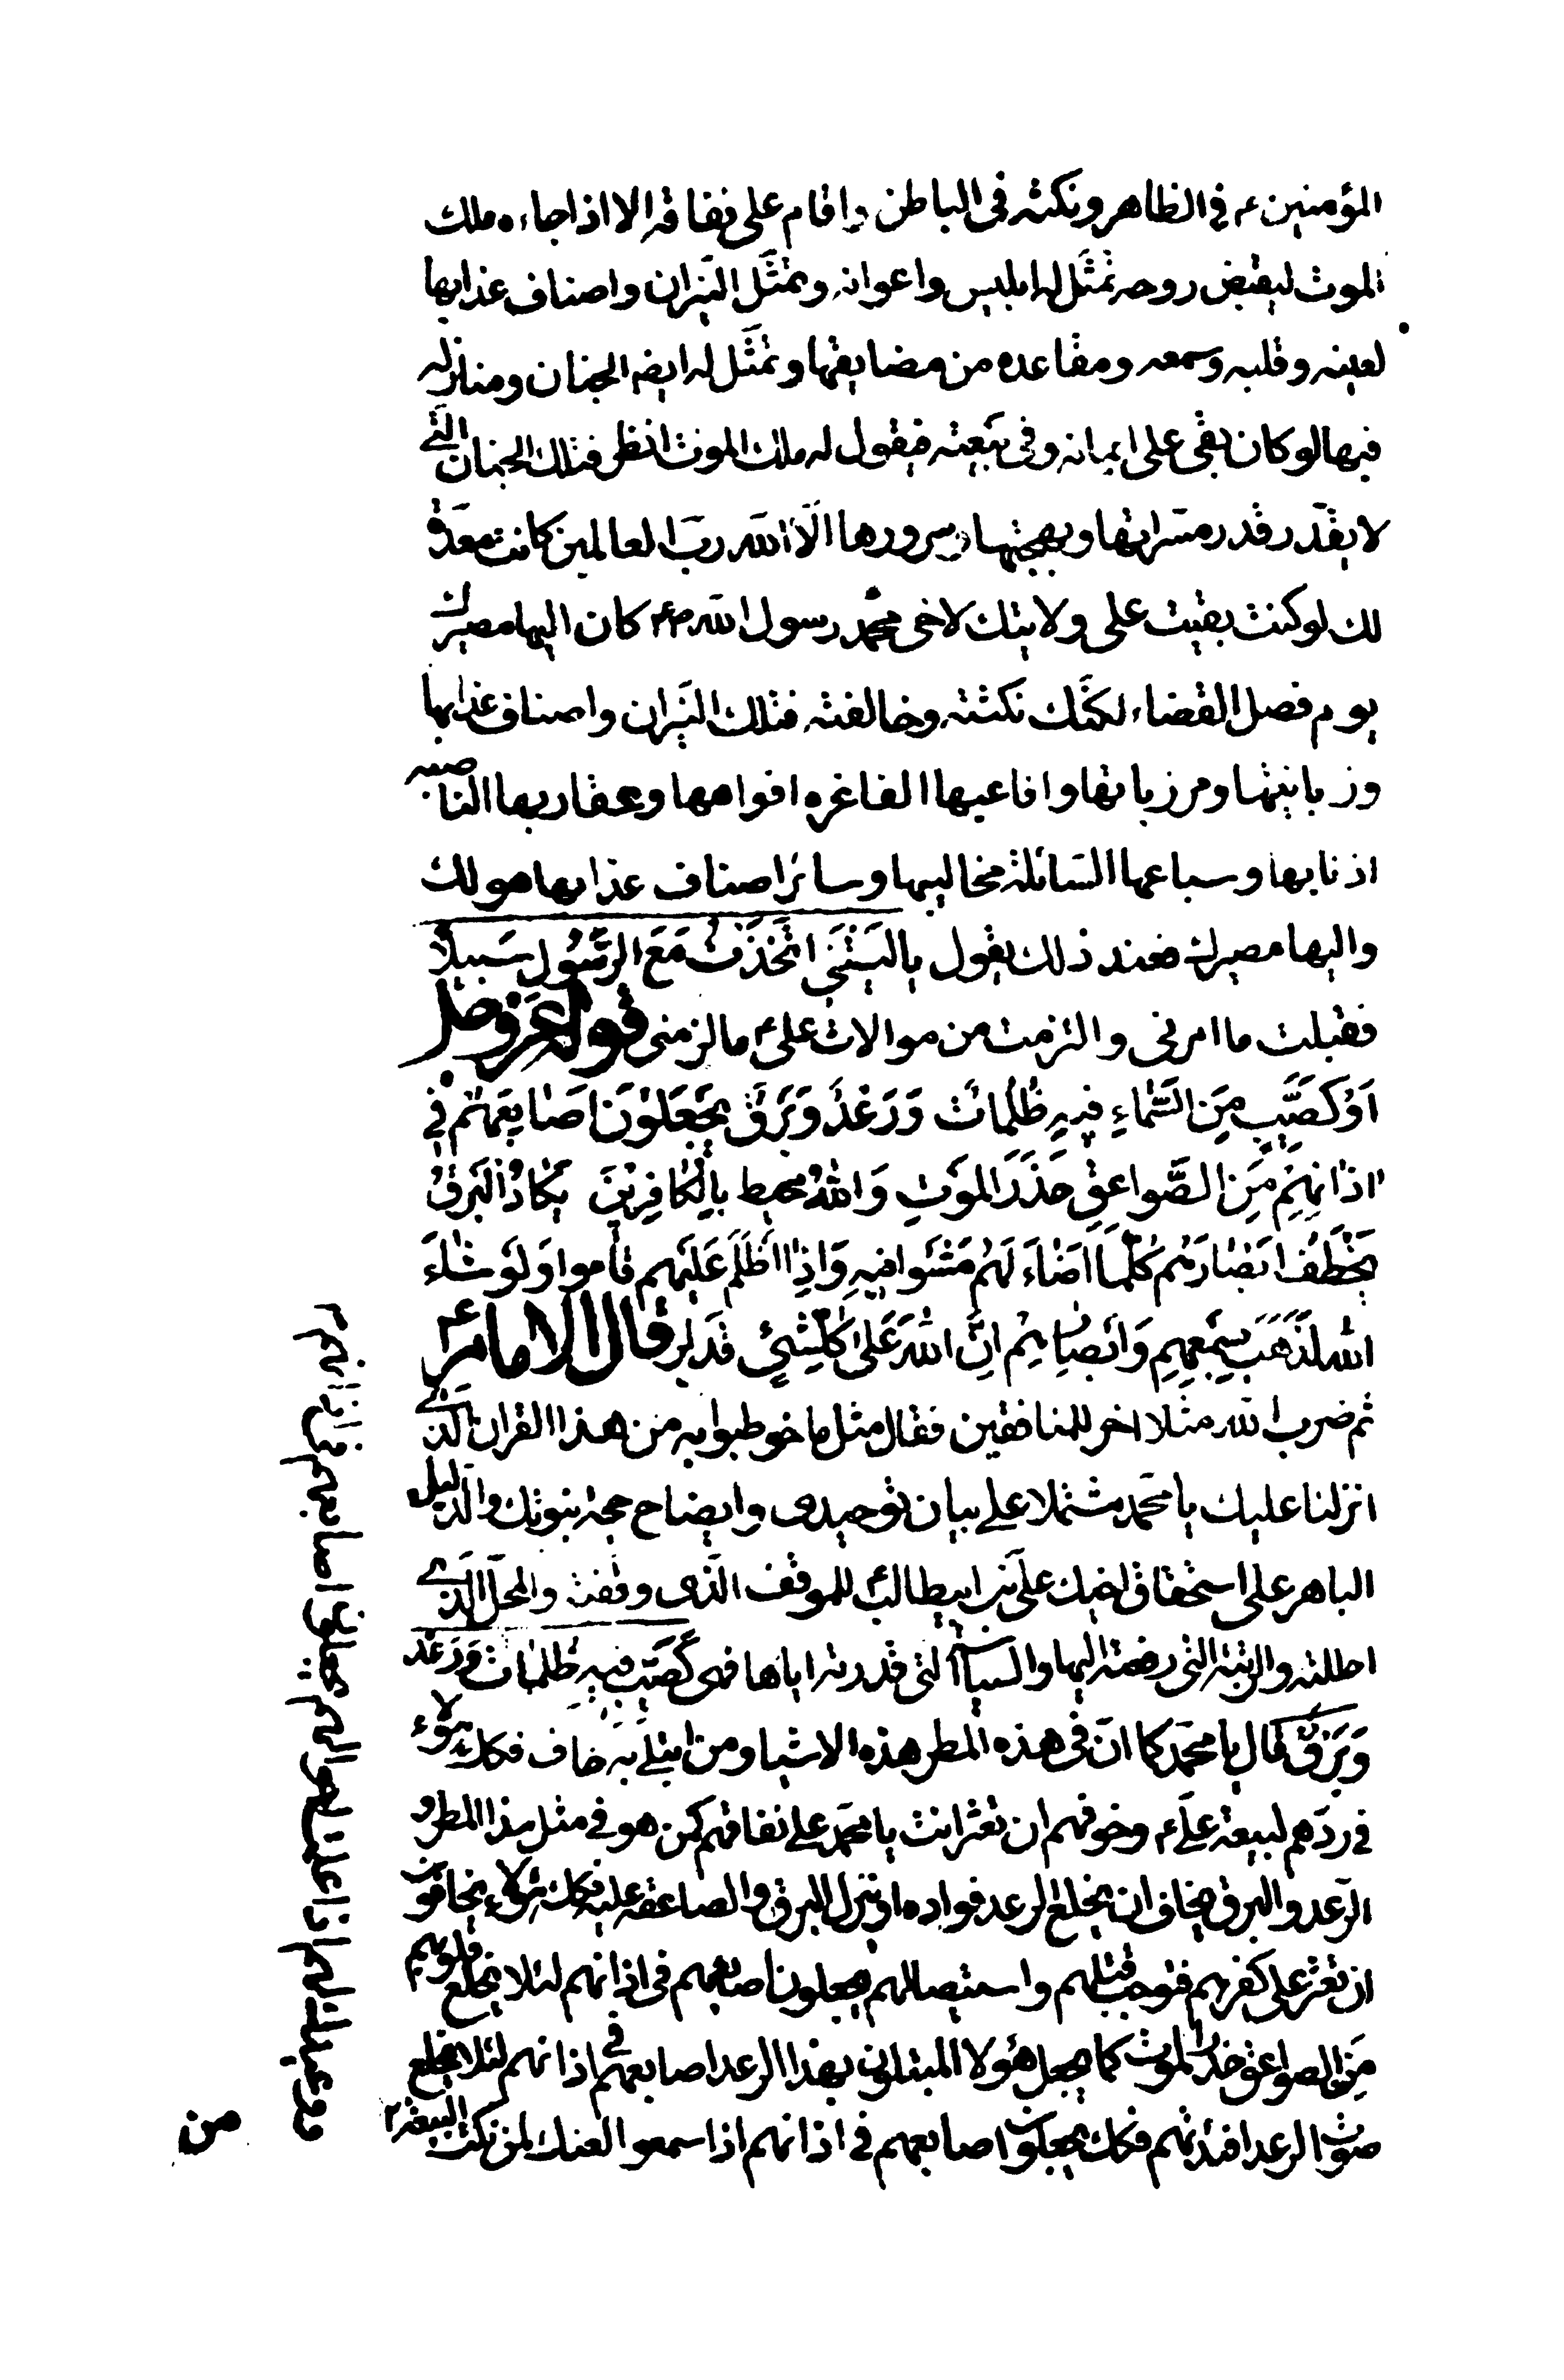 المؤمنين ع في الظاهر ونكثه في الباطن واقام على نفاقه الا اذا جاءه ملك
الموت ليقبض روحه تمثّل له ابليس واعوانه وتمثّل النّيران واصناف عذابها
لعينه وقلبه وسمعه ومقاعده من مضايقها وتمثّل له ايضا الجنان ومنازله
فيها لو كان بقى على ايمانه وفى ببيعته فيقول له ملك الموت انظر فتلك الجنان التّى
لا يقدّر قدر مسرّاتها وبهجتها وسرورها الّا اللّه ربّ العالمين كانت معدّة
لك لو كنت بقيت على ولايتك لاخى محمّد رسول اللّه ص كان اليها مصيرك
يوم فصل القضاء لكنّك نكثته وخالفته فتلك النّيران واصناف عذابها
وزبانيتها ومرزباتها وافاعيها الفاغره افواهها وعقاربها الناصبه
اذنابها وسباعها السّائلة مخاليبها وسائر اصناف عذابها هو لك
واليها مصيرك فعند ذلك يقول يا ليتَنى اتّخَذتُ مَعَ الرّسُولِ سَبيلًا
فقبلت ما امرنى والتزمت من موالات علىّ ع ما لزمنى قوله عزّ وجلّ
اَوْ كَصَيِّبٍ مِنَ السَّمٰاءِ فِيهِ ظُلُمٰاتٌ وَرَعْدٌ وَبَرْقٌ يَجْعَلُوْنَ اَصٰابِعَهُمْ فِى
اذٰانِهِمْ مِنَ الصَّواعِقِ حَذَرَ المَوتِ وَاللّٰهُ محيط بِالْكٰافِرِيْنَ يَكٰادُ البَرقُ
يَخْطَفُ ابَصٰارَهُم كُلَّمٰا اَضٰاءَ لَهُم مَشَوا فيهِ وَاِذٰا اَظلَمَ عَلَيهِم قٰاموا وَلَو شٰاءَ
اللّه لَذَهَبَ بِسَمعِهِم وَاَبصٰارِهِم اِنَّ اللّٰهَ عَلىٰ كُلِّ شَيْءٍ قَدير قال الامام ع
ثم ضرب اللّه مثلا اخر للمنافقين فقال مثل ما خوطبوا به من هذا القران الّذى
انزلنا عليك يا محمّد مشتملا على بيان توحيدى وايضاح حجة نبوتك والدّليل
الباهر على استحقاق اخيك علىّ بن ابيطالب ع للموقف الّذى وقفته والمحلّ الّذى
احللته والرتبة التى رفعته اليها والسياسة التى قدرته اياها فهى كَصَيّبٍ فيهِ ظُلمٰات وَرَعْد
وَبَرْقٌ قال يا محمّد كما انّ فى هذه المطر هذه الاشياء ومن ابتلى به خاف فكك هؤلاء
فى ردّهم لبيعة علىّ ع وخوفهم ان تعثر انت يا محمّد على نفاقهم كمن هو فى مثل هذا المطر و
الرّعد والبرق يخاف ان يخلع الرعد فواده او ينزل البرق والصاعقه عليه فكك هؤلاء يخافون
ان تعثر على كفرهم فتوجب قتلهم واستيصالهم يجعلون اصابعهم فى اذانهم لئلا يخلع قلوبهم
مِنَ الصواعق حذَر الموت كما يجعل هؤلا المبتلون بهذا الرعد اصابعهم فى اذانهم لئلا يخلع
صوت الرعد افئدتهم فكك يجعلون اصابعهم فى اذانهم اذا سمعوا لعنك لمن نكث البيعة
من